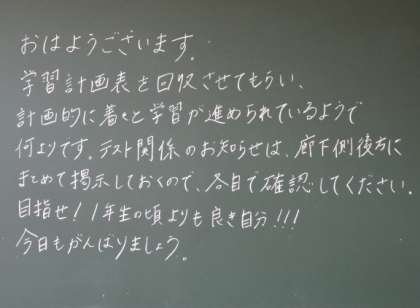 おはようございます。
学習計画表を回収させてもらい、
計画的に着々と学習が進められているようで
何よりです。テスト関係のお知らせは、廊下側後方に
まとめて掲示しておくので、各自で確認してください。
目指せ！1年生の頃よりも良き自分！！！
今日もがんばりましょう。